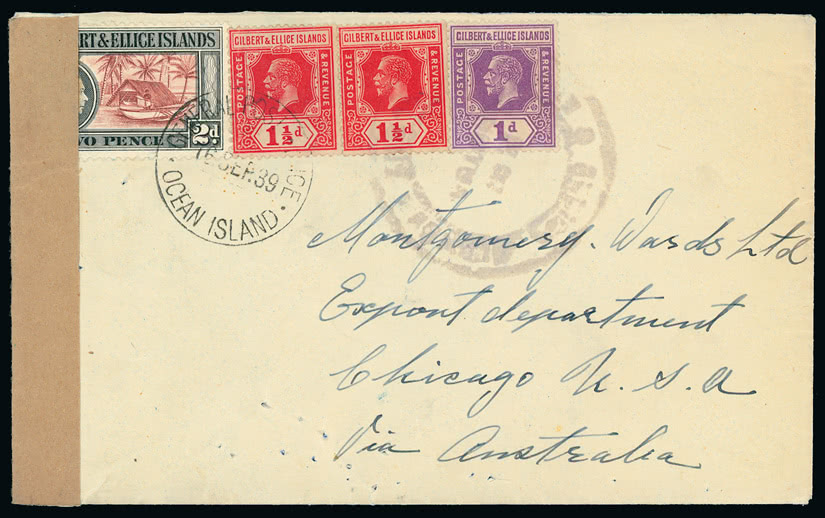 BERT & ELLICE ISLANDS
WO PENCE 2d.
GILBERT & ELLICE ISLANDS
POSTAGE & REVENUE
1½d
GILBERT & ELLICE ISLANDS
POSTAGE & REVENUE
1½d
GILBERT & ELLICE ISLANDS
POSTAGE & REVENUE
1d
GENERAL POST OFFICE
16 SEP. 39
OCEAN ISLAND
Montgomery. Wards Ltd
Export department
Chicago U. S. A
Via Australia